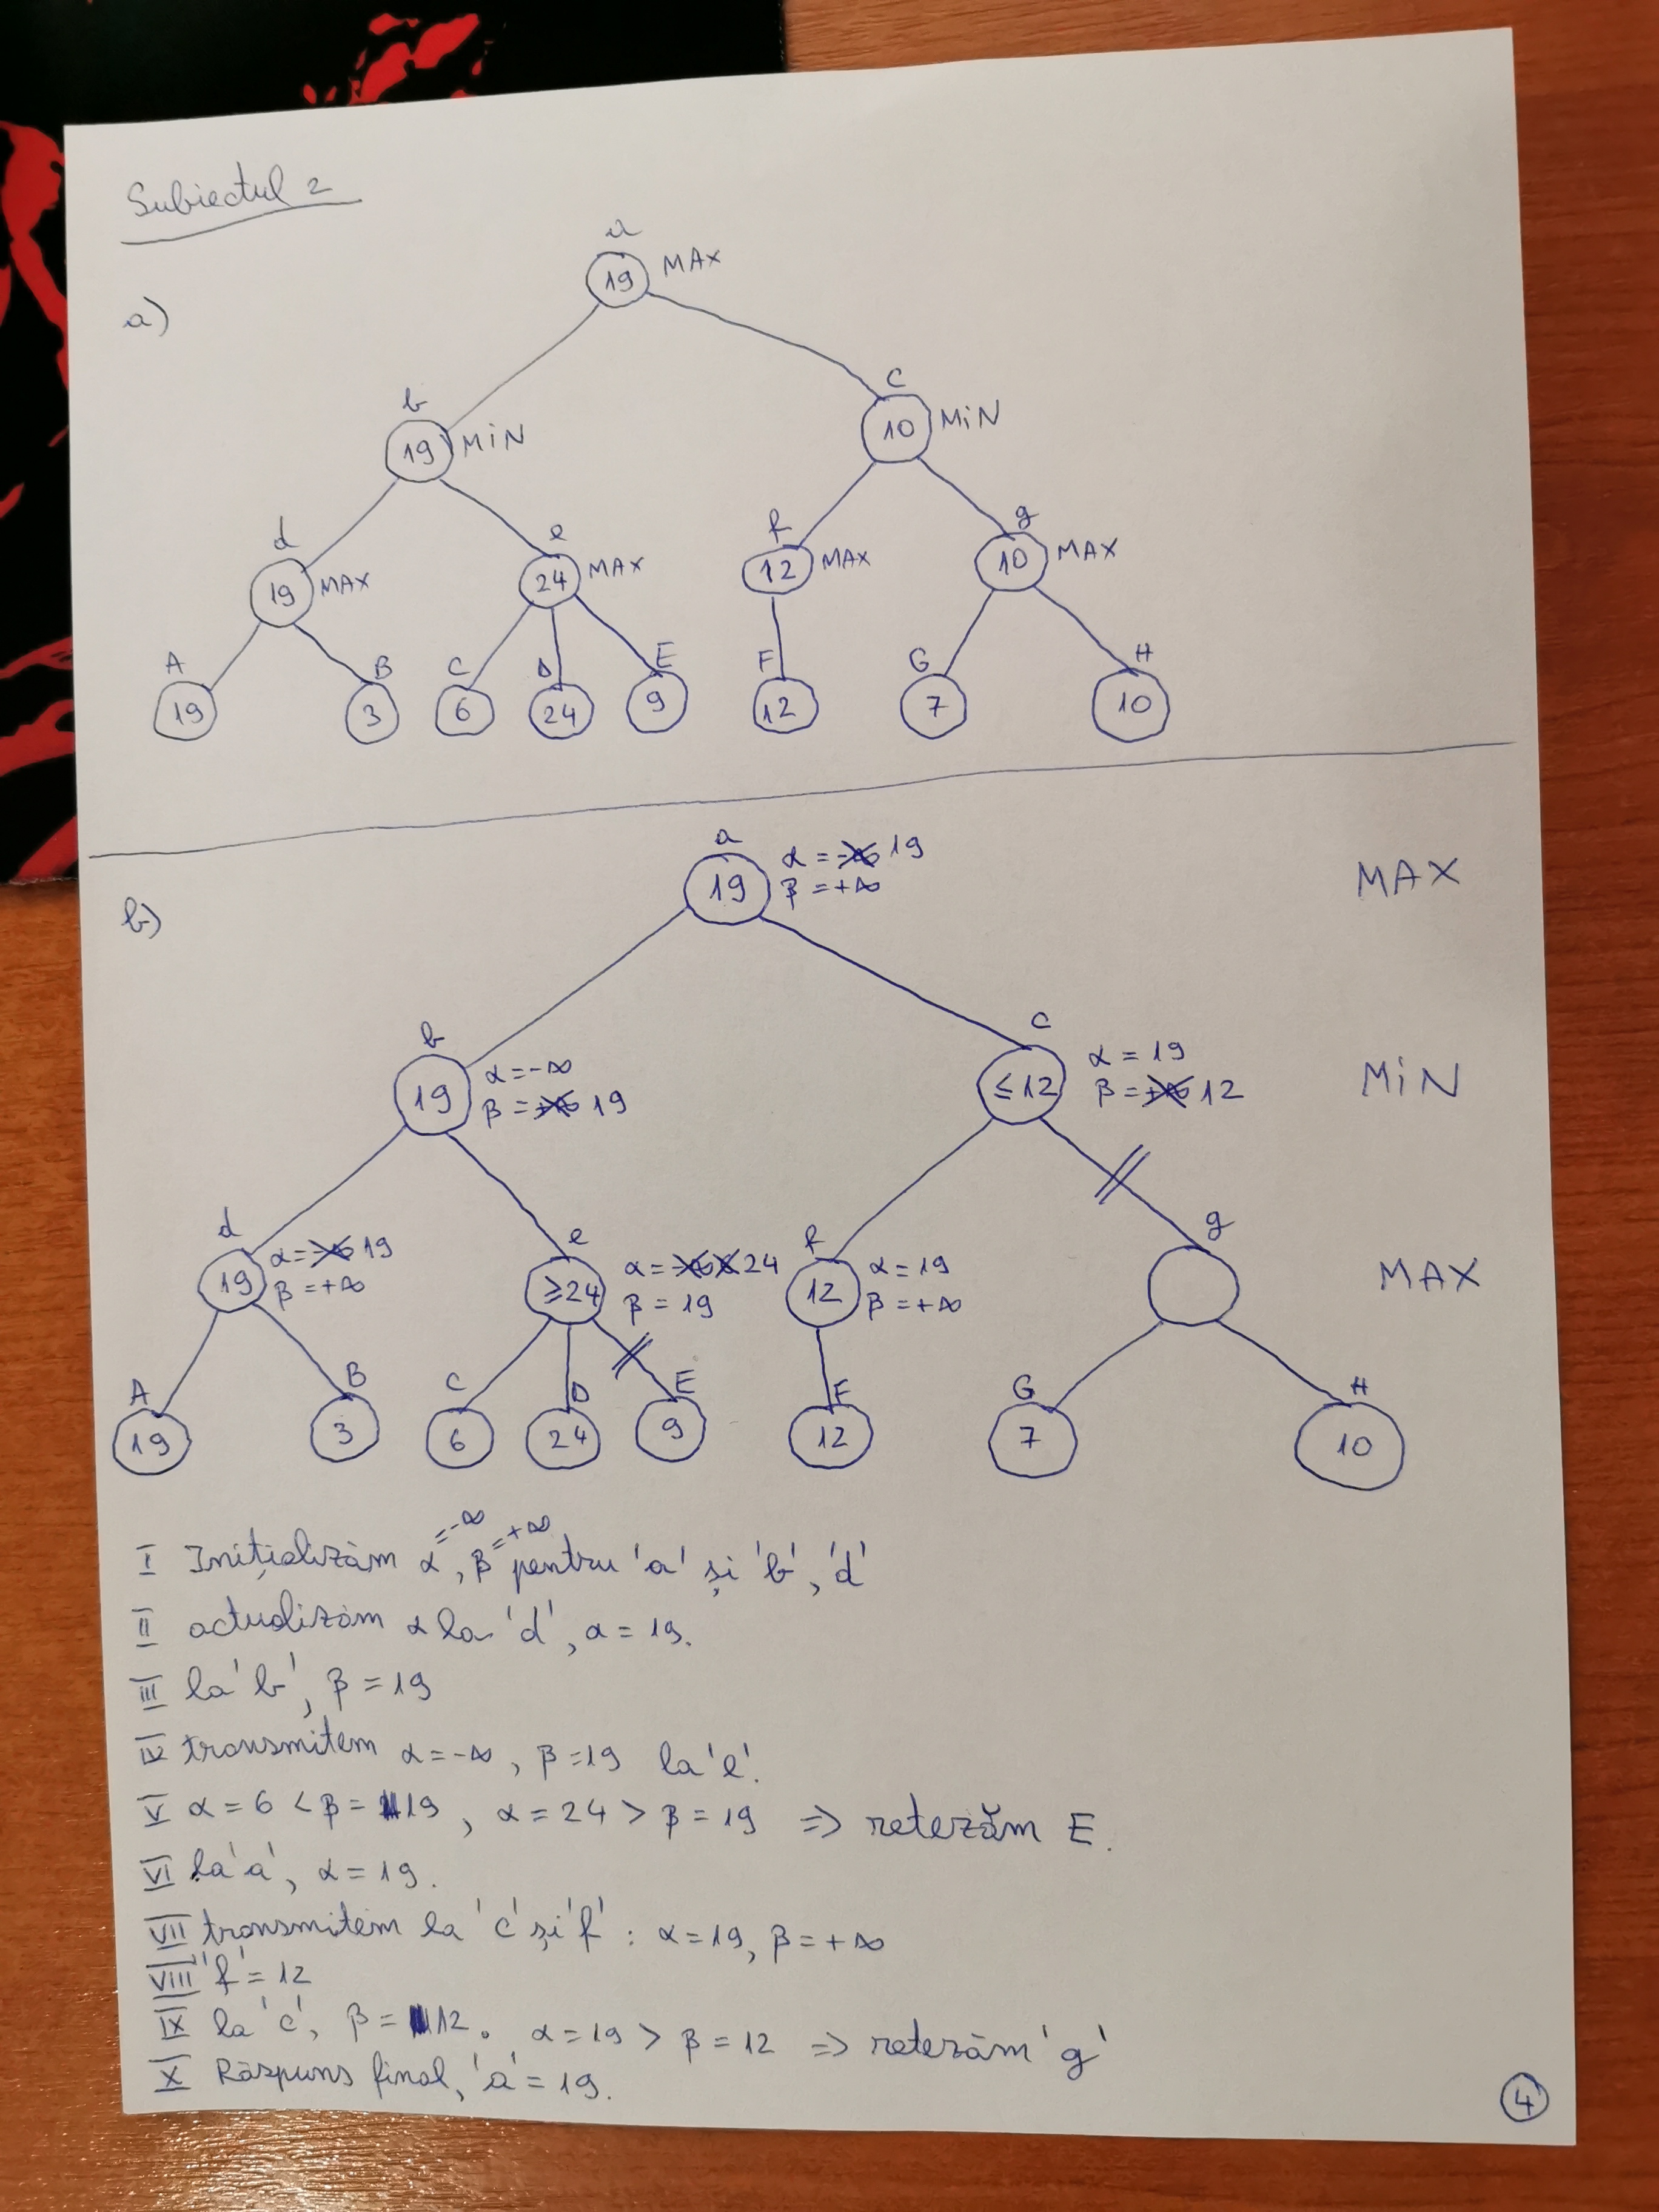 Subiectul 2
a)
a
19 MAX
b
19 MIN
c
10 MIN
d
19 MAX
e
24 MAX
f
12 MAX
g
10 MAX
A B C D E F G H
19 3 6 24 9 12 7 10
b)
a
19
α = 19
β = +∞
MAX
b
19
α = -∞
β = 19
c
≤12
α = 19
β = 12
MIN
d
19
α = 19
β = +∞
e
≥24
α = 24
β = 19
f
12
α = 19
β = +∞
g
MAX
A B C D E F G H
19 3 6 24 9 12 7 10
I Inițializăm α = -∞, β = +∞ pentru 'a' și 'b', 'd'
II actualizăm α la 'd', α = 19.
III la 'b', β = 19
IV transmitem α = -∞, β = 19 la 'e'.
V α = 6 < β = 19, α = 24 > β = 19 => retezăm E.
VI la 'a', α = 19.
VII transmitem la 'c' și 'f' : α = 19, β = +∞
VIII 'f' = 12
IX la 'c', β = 12. α = 19 > β = 12 => retezăm 'g'
X Răspuns final, 'a' = 19.
4